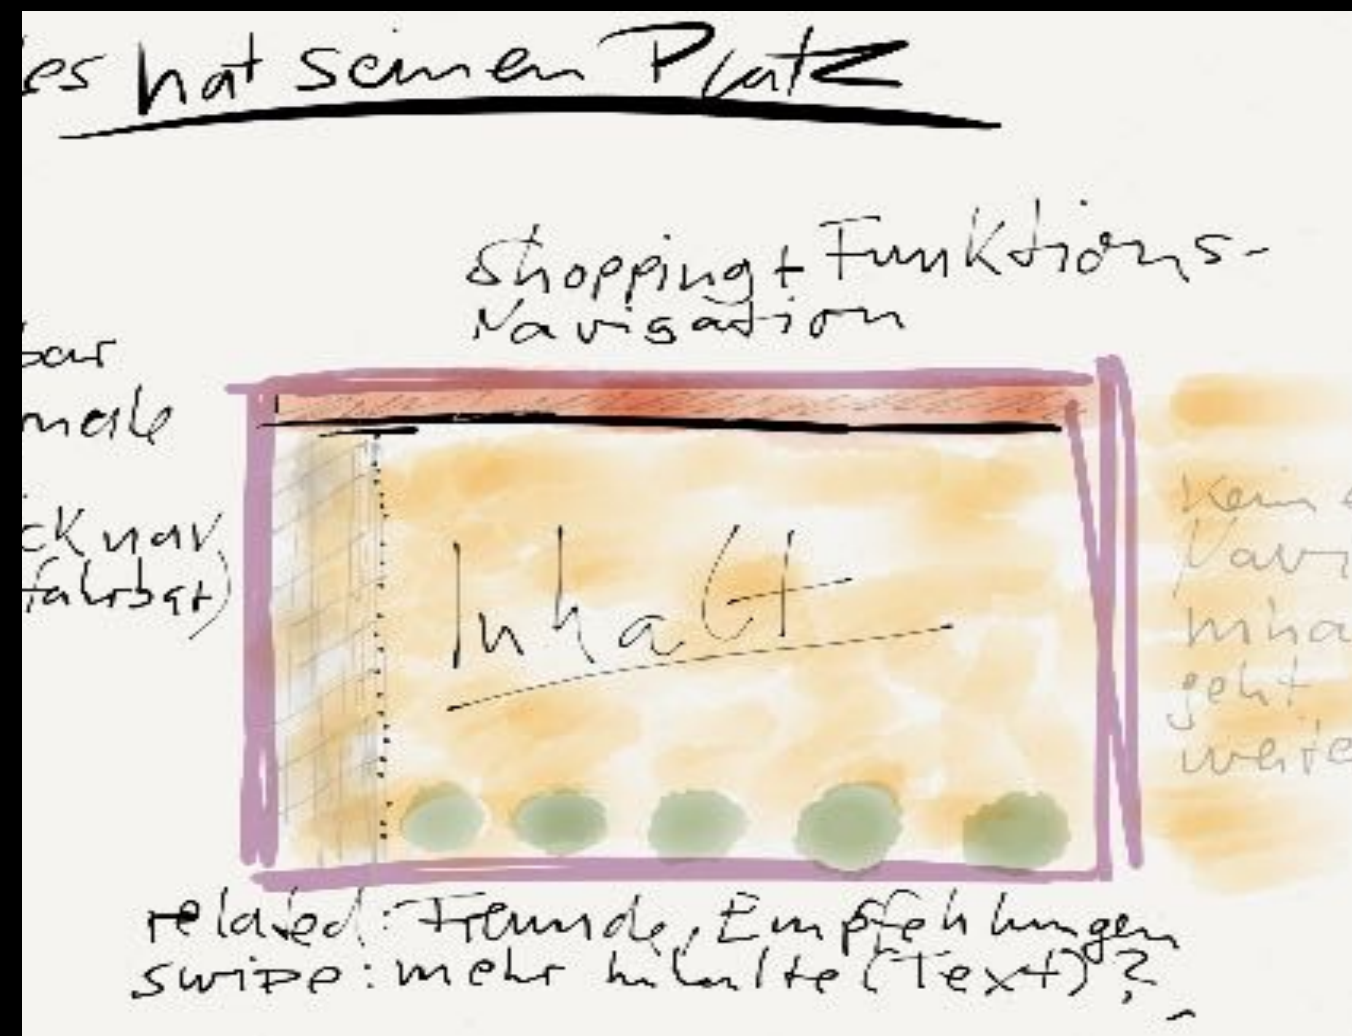 es hat seinen Platz
Shopping + Funktions-
Navigation
bar
male
ck nav
fahrbar)
Inhalt
Kein
Navi
Inha
geht
weite
related: Freunde, Empfehlungen
swipe: mehr Inhalte (Text)?